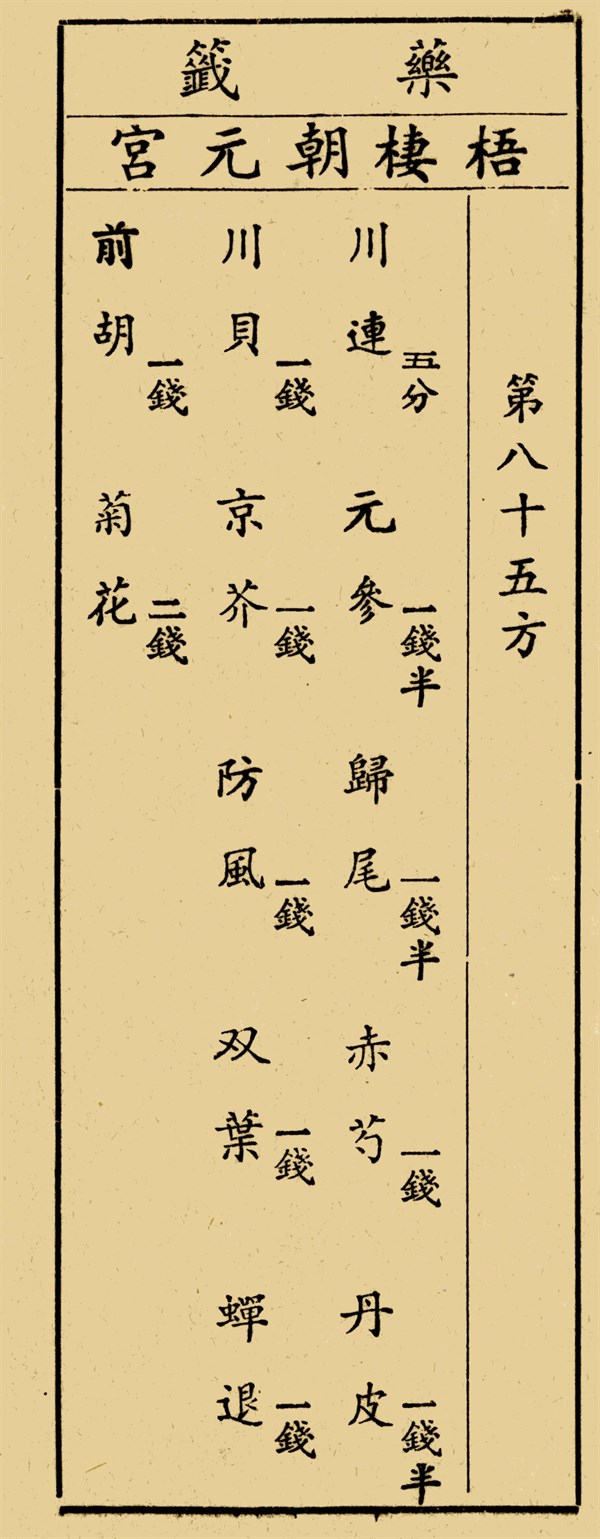 藥籤
梧棲朝元宮
第八十五方
川連五分 元參一錢半 歸尾一錢半 赤芍一錢 丹皮一錢半
川貝一錢 京芥一錢 防風一錢 双葉一錢 蟬退一錢
前胡一錢 菊花二錢